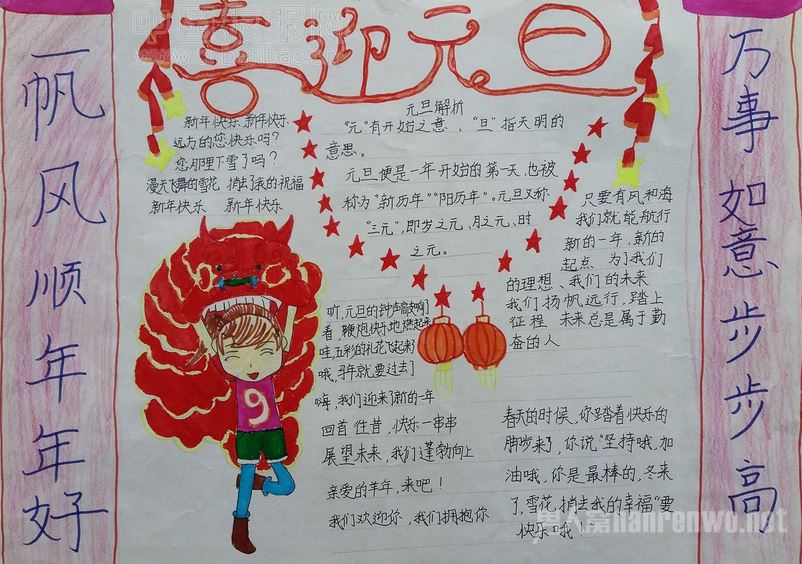 喜迎元旦
一帆风顺年年好
万事如意步步高
新年快乐 新年快乐
远方的您快乐吗？
您那里下雪了吗？
漫天飞舞的雪花 捎去了我的祝福
新年快乐 新年快乐
元旦解析
“元”有开始之意，“旦”指天明的
意思。
元旦便是一年开始的第一天，也被
称为“新历年”“阳历年”。元旦又称
“三元”，即岁之元、月之元、时
之元。
只要有风和海
我们就能航行
新的一年，新的
起点 为了我们
的理想、我们的未来
我们扬帆远行，踏上
征程 未来总是属于勤
奋的人
听，元旦的钟声敲响了
看，鞭炮快乐地燃起来
哇，五彩的礼花飞起来了
哦，马年就要过去了
嗨，我们迎来了新的一年
回首往昔，快乐一串串
展望未来，我们蓬勃向上
亲爱的羊年，来吧！
我们欢迎你，我们拥抱你
春天的时候，你踏着快乐的
脚步来了，你说“坚持哦，加
油哦，你是最棒的，冬来
了，雪花，捎去我的幸福“要
快乐哦！”
9
nanrenwo.net